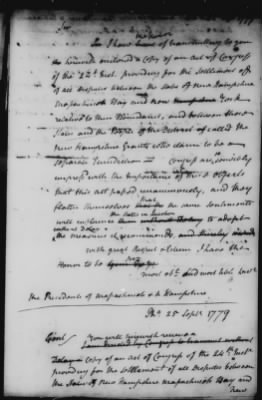 Sir
In I have the honor of transmitting to you
the herewith enclosed a Copy of an Act of Congress
of the 24th Inst. providing for the Settlement of
all disputes between the States of New Hampshire
Massachusetts Bay and New York
relative to their Boundaries, and between those
States and the People of the District called the
New Hampshire Grants who claim to be an
separate Jurisdiction — Congress, sensibly
imprest with the importance of the Objects
that this act passed unanimously, and they
flatter themselves that the same sentiments
will influence to adopt
the measures it recommends, and thereby
with great Respect & Esteem I have the
Honor to be
most obt. and most hble Servt
The Presidents of Massachusetts & N Hampshire
Pha. 25 Sepr. 1779
Gent. you will herewith receive a
Copy of an Act of Congress of the 24th Inst.
providing for the settlement of all Disputes between
the States of New Hampshire Massachusetts Bay and
New